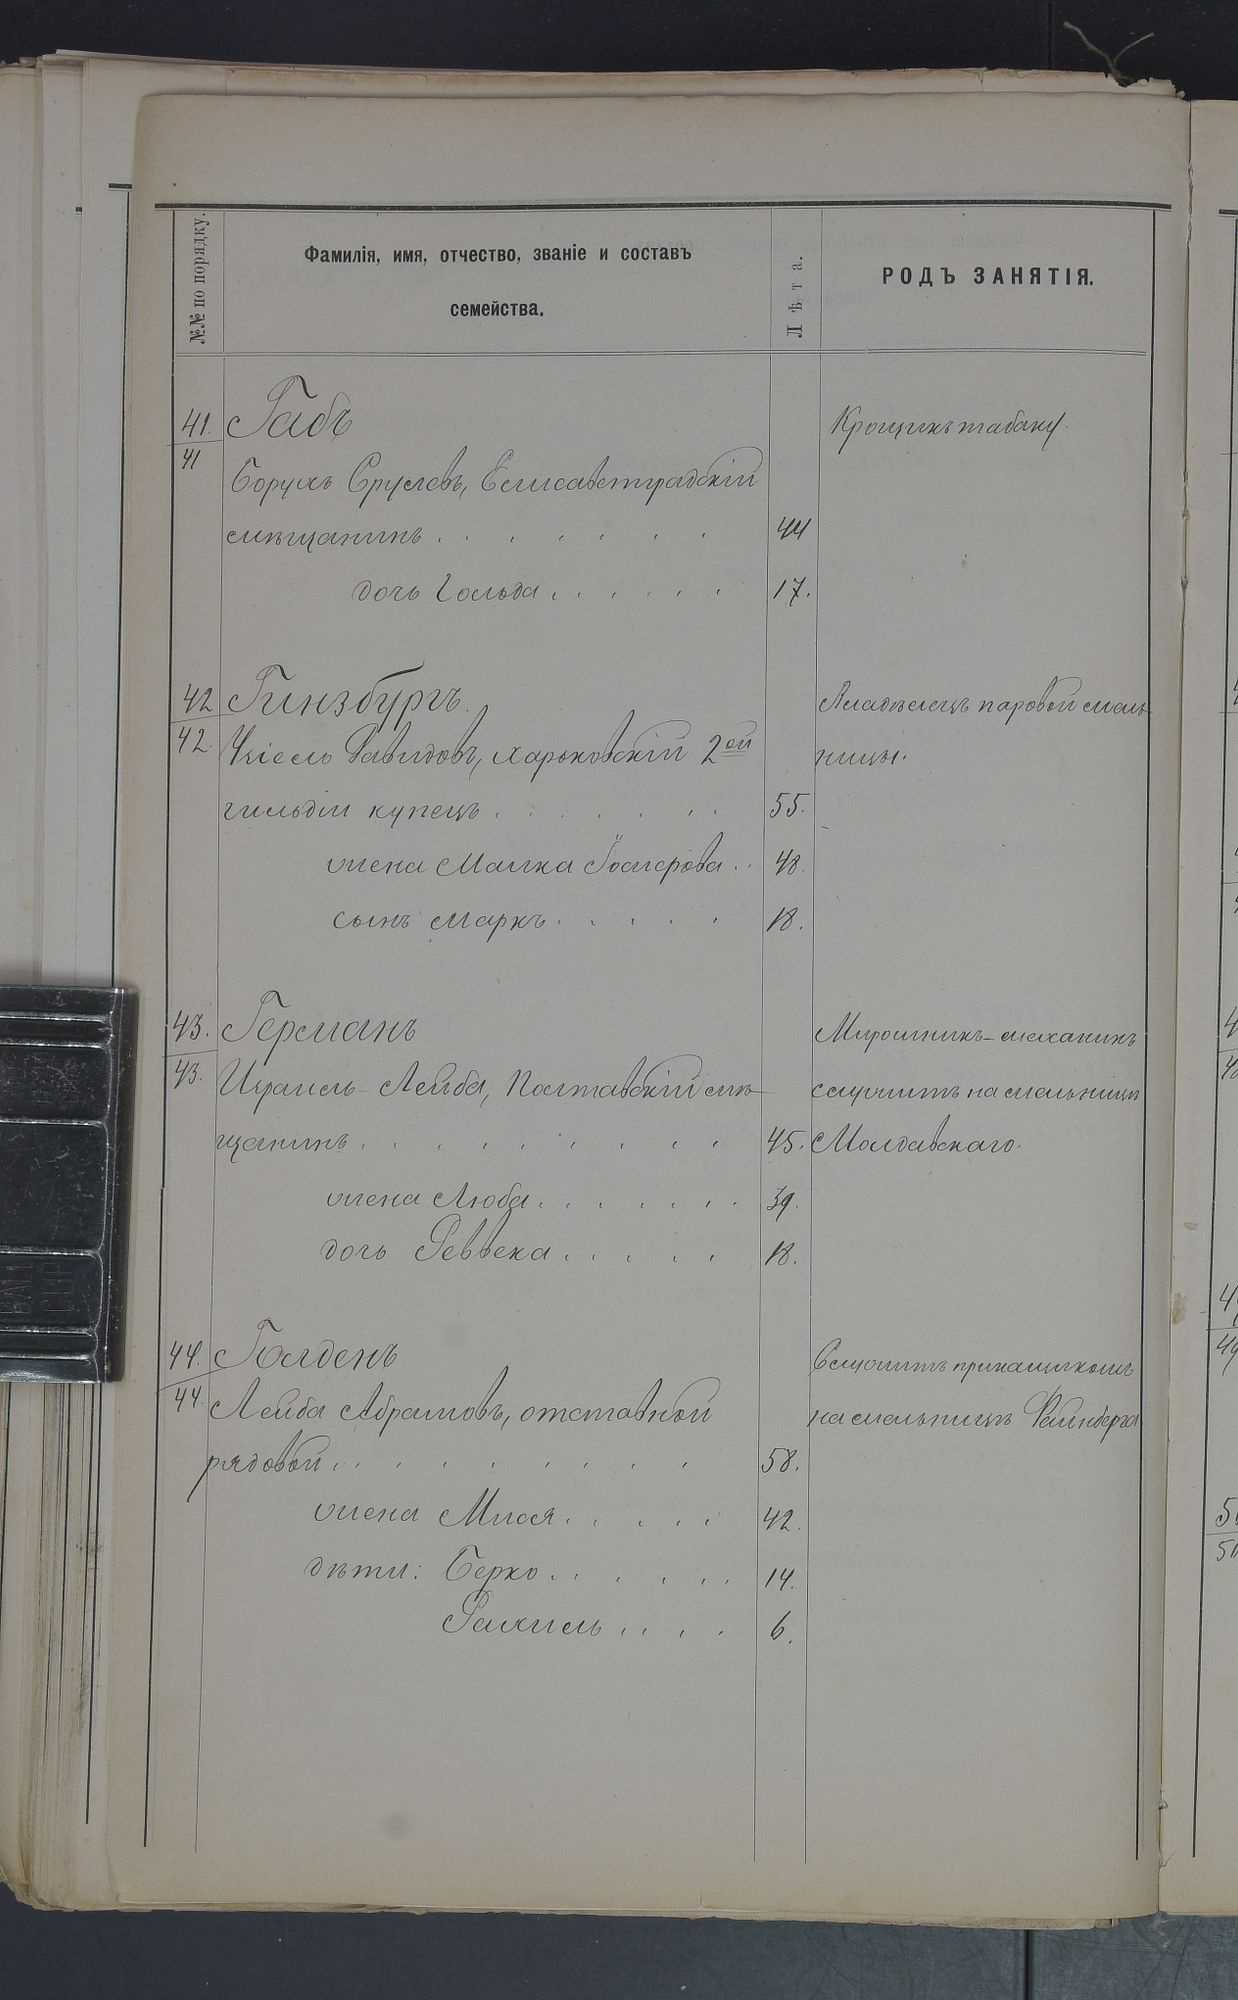 №№ по порядку.
Фамилія, имя, отчество, званіе и составъ
семейства.
Лѣта.
РОДЪ ЗАНЯТІЯ.
41. Габъ Крошикъ табаку.
41
Борухъ Срулевъ, Елисаветградскій
мѣщанинъ . . . . . . . 44
дочь Гольда . . . . . . 17.
42 Гинзбургъ. Владѣлецъ паровой мель-
42. Іхіель Давидовъ, харьковскій 2ой ницы.
гильдіи купецъ . . . . . . . 55.
жена Малка . . 48.
сынъ Маркъ . . . . . 18.
43. Германъ Мирошникъ-механикъ
43. Израиль-Лейба, Полтавскій мѣ- служитъ на мельницѣ
щанинъ . . . . . . . . . 45. Молдавскаго.
жена Люба . . . . . . . 39.
дочь Реввека . . . . . 18.
44. Голденъ Служитъ прикащикомъ
44. Лейба Абрамовъ, отставной на мельницѣ Файнберга
рядовой . . . . . . . . . 58.
жена Мися . . . . . 42.
дѣти: Берко . . . . . . 14.
Рахиль . . . . 6.
BALL
CLIP